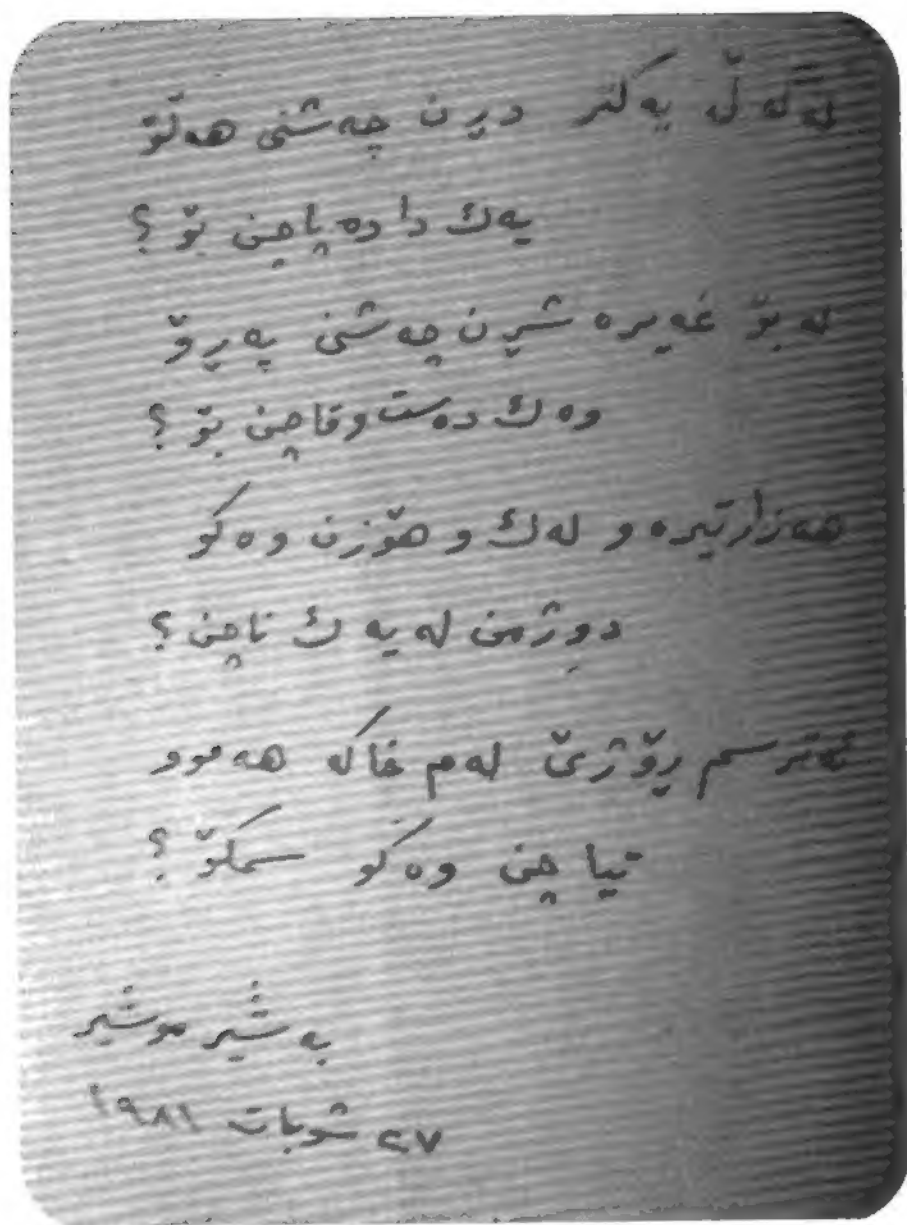 لەگەڵ یەکتر دڕن چەشنی هەڵۆ
یەك دادەپاچن بۆ؟
لە بۆ غەیرە شڕن چەشنی پەڕۆ
وەك دەست وقاچن بۆ؟
هەزارتیرە و لەك و هۆزن وەکو
دوژمن لە یەك ناچن؟
ئەترسم ڕۆژێ لەم خاکە هەموو
تیاچن وەکو سمکۆ؟
بەشیر موشیر
٢٧ شوبات ١٩٨١